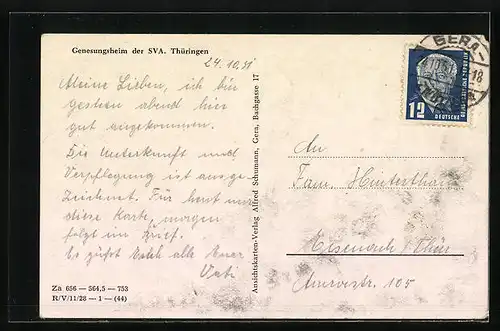 Genesungsheim der SVA. Thüringen
24.10.51
Meine Lieben, ich bin
gestern abend hier
gut angekommen.
Die Unterkunft und
Verpflegung ist ausge-
zeichnet. Für heut nur
diese Karte, morgen
folgt ein Brief.
Es grüßt Euch alle Euer
Vati
Za 656 — 564,5 — 753
R/V/11/28 — 1 — (44)
Ansichtskarten-Verlag Alfred Schumann, Gera, Bachgasse 17
GERA
18
12
DEUTSCHE
An
Fam.
Eisenach / Thür
105